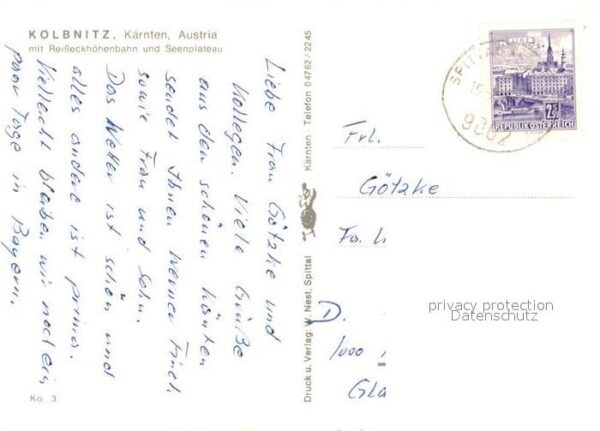 KOLBNITZ, Kärnten, Austria
mit Reißeckhöhenbahn und Seenplateau
Liebe Frau Götzke und
Kollegen. Viele Grüße
aus den schönen Kärnten
sendet Ihnen Werner
sowie Frau und Sohn.
Das Wetter ist schön und
alles andere ist prima.
Vielleicht bleiben wir noch ein
paar Tage in Bayern.
Ko 3
Druck u. Verlag: W. Nest, Spittal
Kärnten Telefon 04762/2245
LINZ
2.50
REPUBLIK ÖSTERREICH
SPITT
9802
Frl.
Götzke
Fa.
D.
1000
privacy protection
Datenschutz